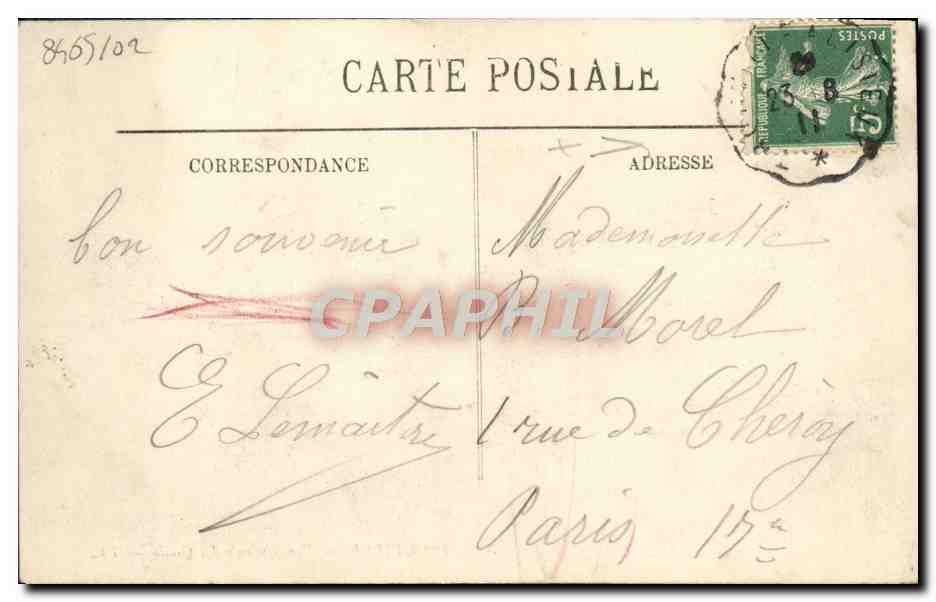 8465/02
CARTE POSTALE
CORRESPONDANCE
ADRESSE
POSTES
REPUBLIQUE FRANÇAISE
5c
23 8
11
bon souvenir
E Lemaitre
Mademoiselle
B Morel
1 rue de Chéroy
Paris 17e
CPAPHIL